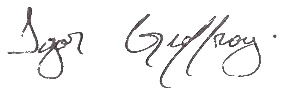 Igor Geffroy.